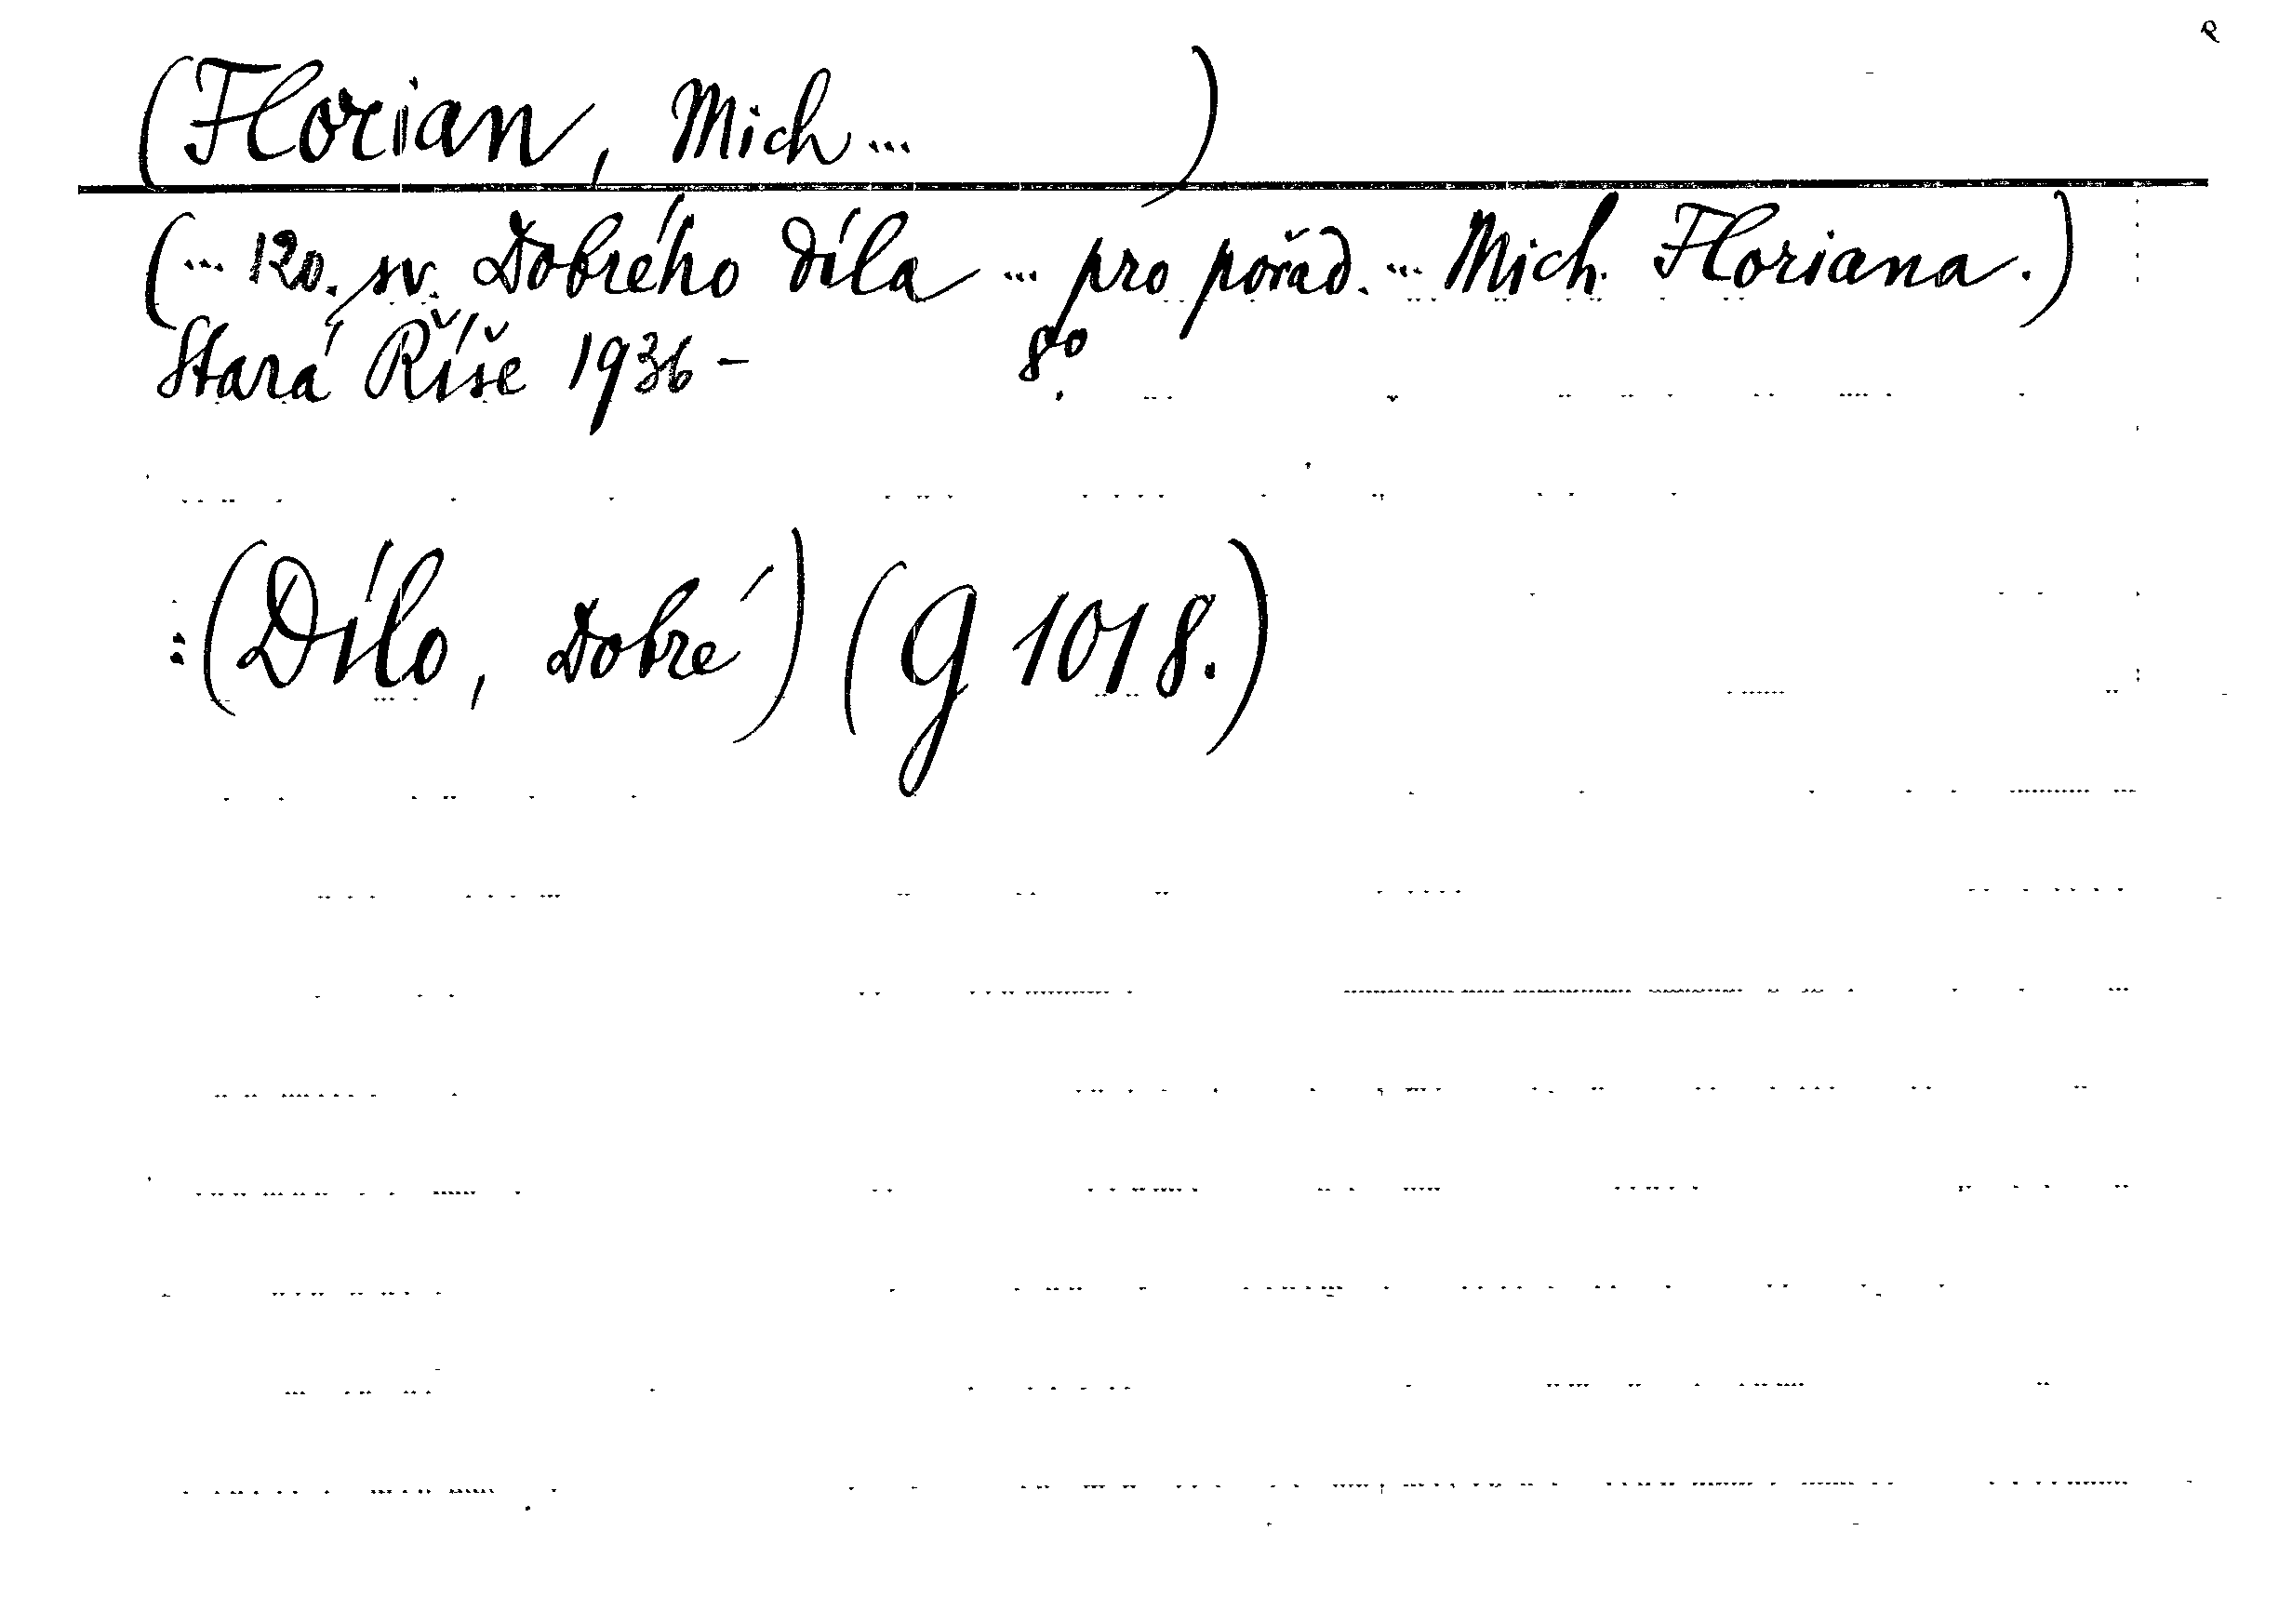 (Florian, Mich... )
(... 120. sv. Dobrého díla ... pro pořad. ... Mich. Floriana.)
Stará Říše 1936 - 8°.
:(Dílo, Dobré) (G 1018.)